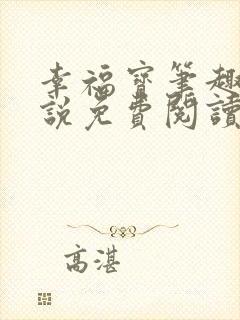 幸福寶筆趣
說免費閱讀
高湛